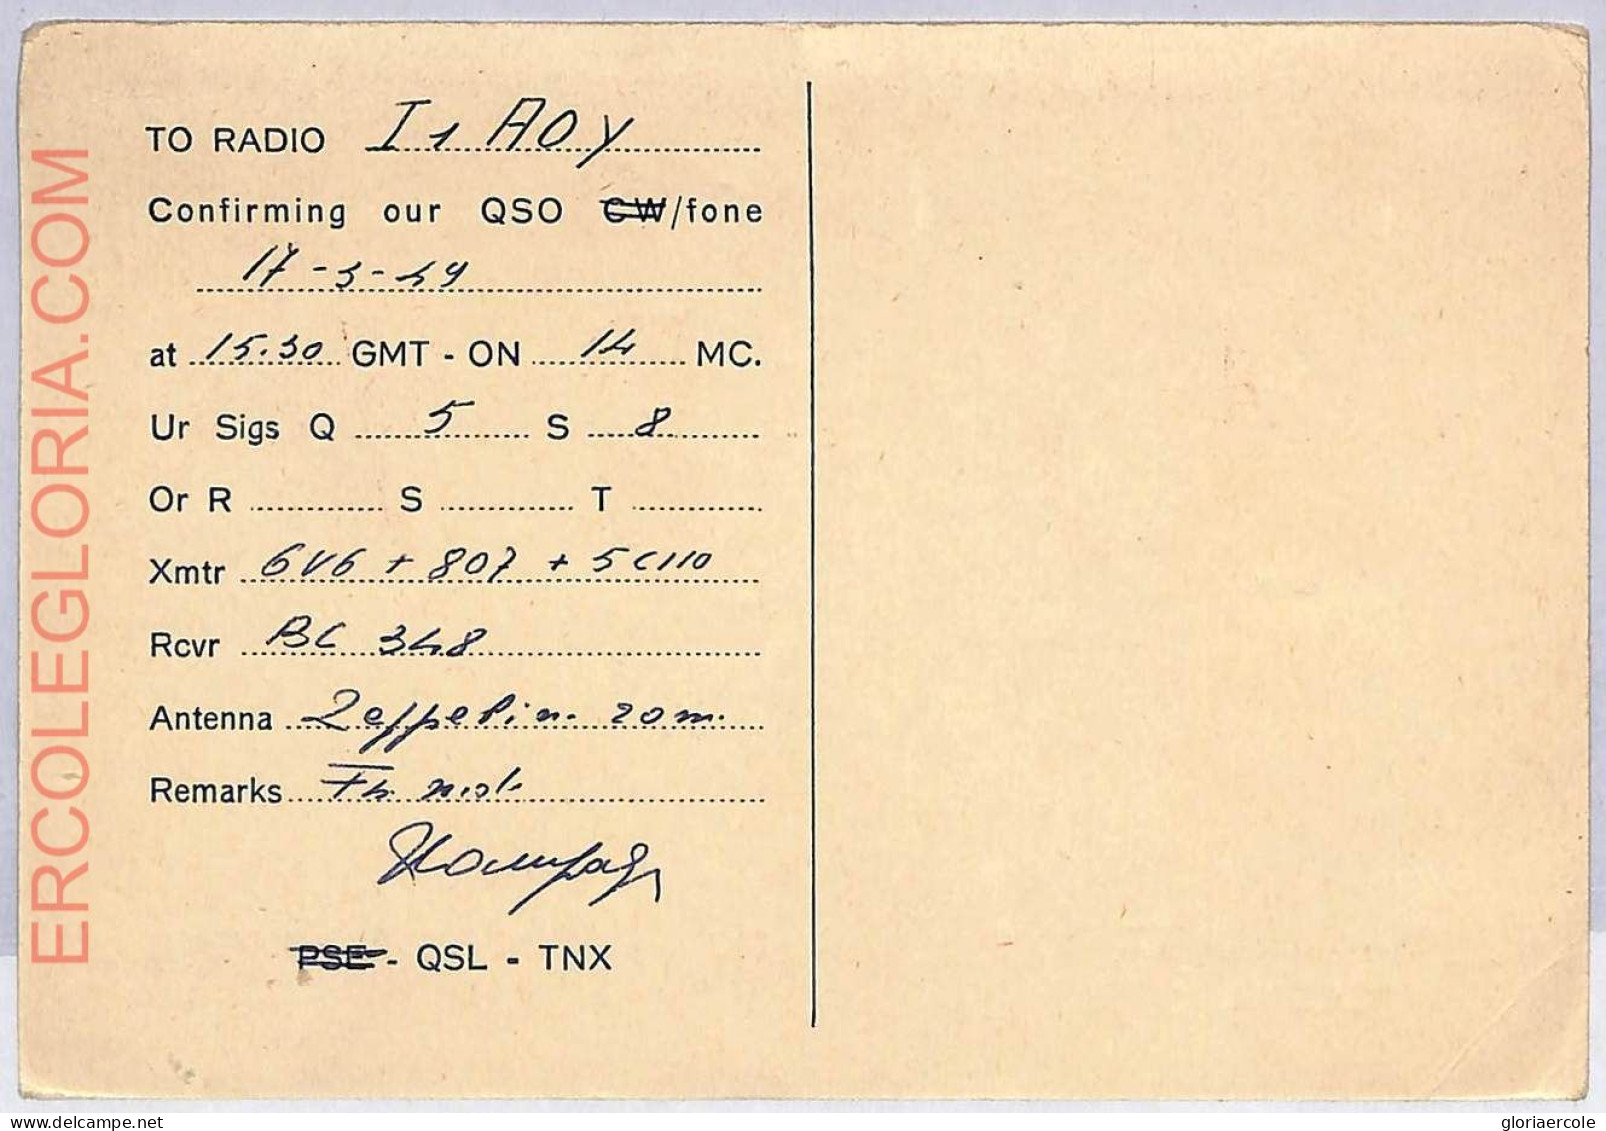 TO RADIO I1 AOY
Confirming our QSO CW/fone
17-3-49
at 15.30 GMT - ON 14 MC.
Ur Sigs Q 5 S 8
Or R S T
Xmtr 6V6 + 807 + 5C110
Rcvr BC 348
Antenna Zeppelin 20 m.
Remarks
PSE - QSL - TNX
ERCOLEGLORIA.COM
gloriaercole